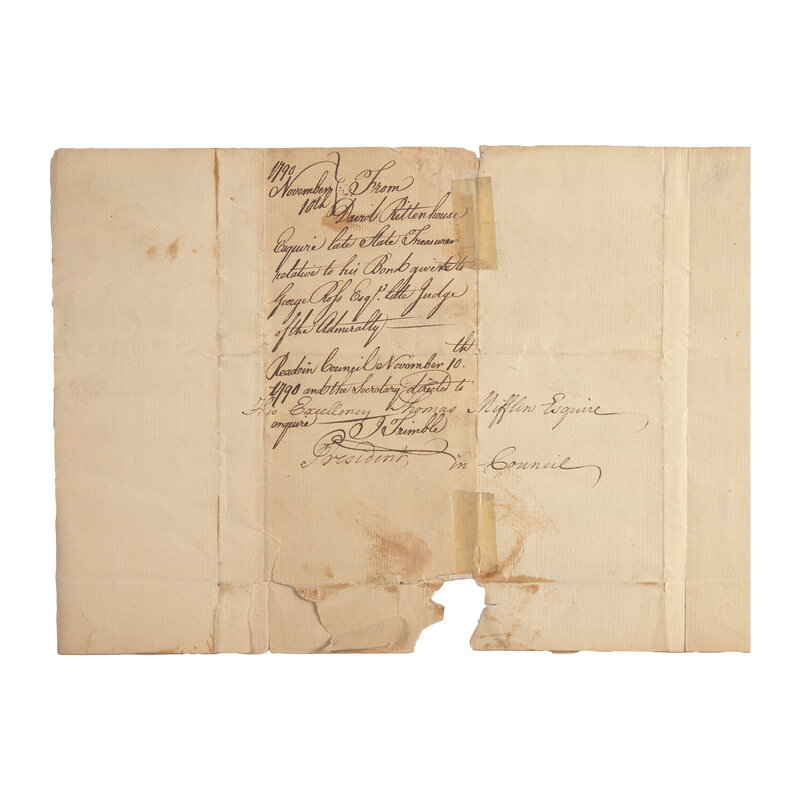 1790
November
10th
From
David Rittenhouse
Esquire late State Treasurer
relative to his Bond given to
George Ross Esqr. late Judge
of the Admiralty
Read in Council November 10.th
1790 and the Secretary directed to
His Excellency Thomas Mifflin Esquire
enquire J Trimble
President, in Council